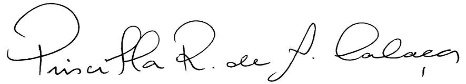 Priscilla R. de S. Calaça